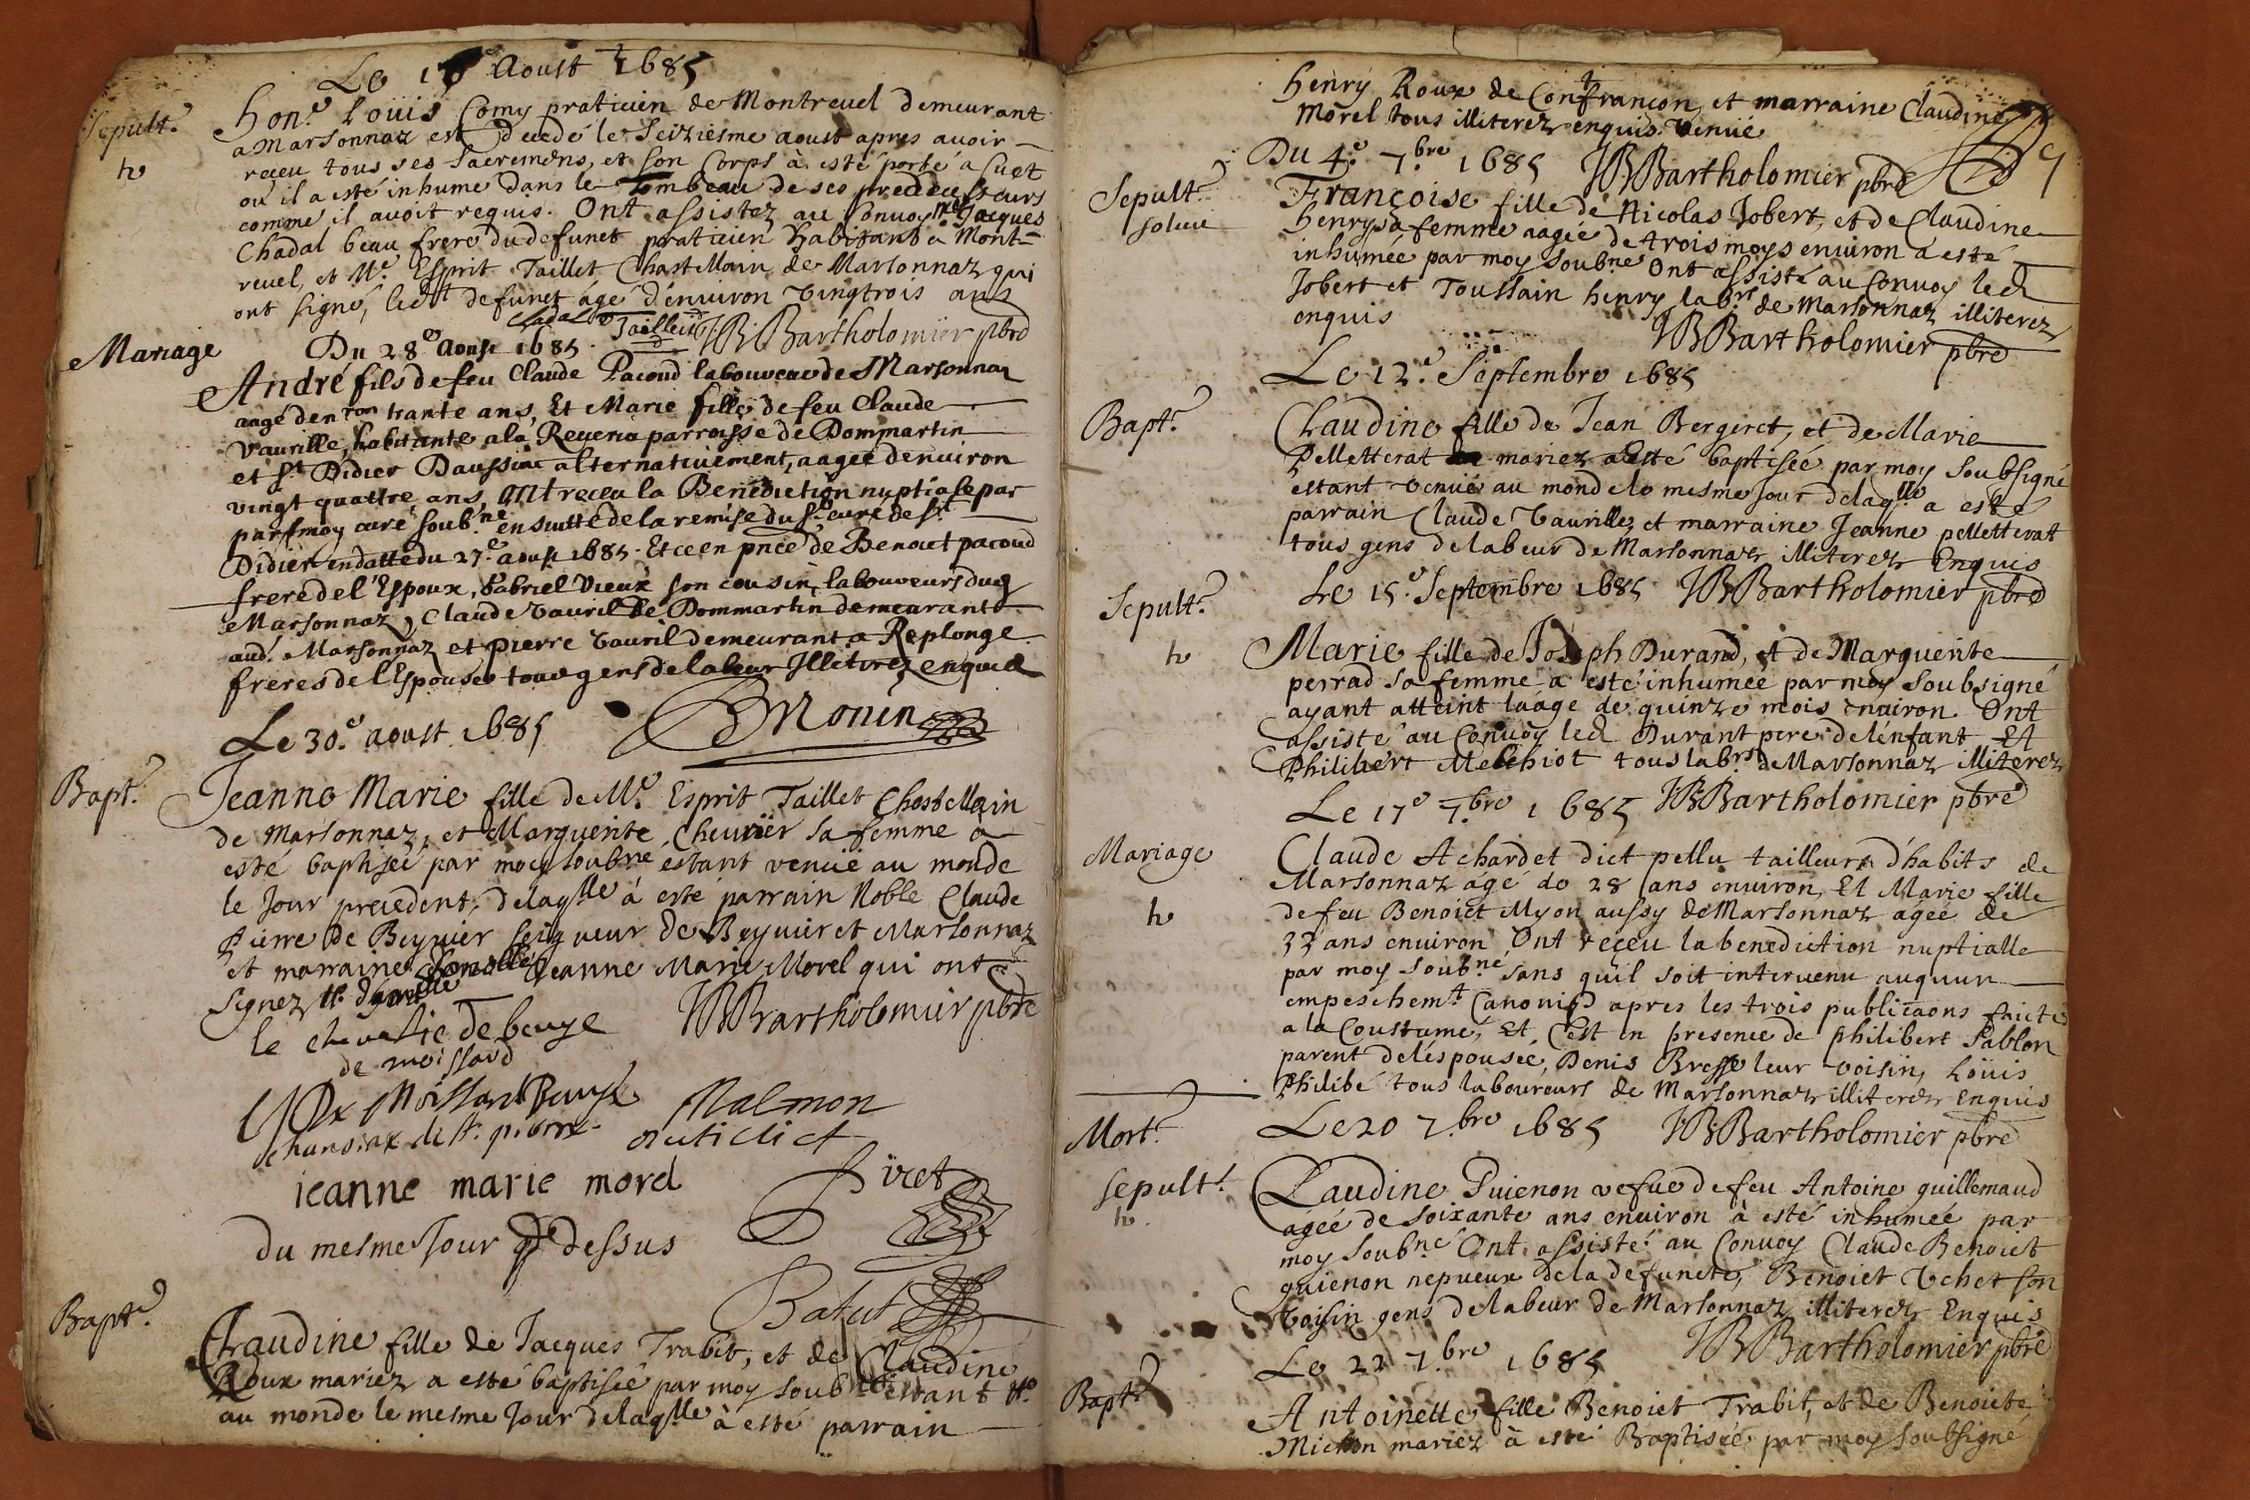 Le 17 Aoust 1685
Sepult.e
h
Hon.e Loüis Comy praticien de Montrevel demeurant
a Marsonnaz est decedé le Seiziesme aoust apres avoir
receu tous ses Sacremens, et son Corps à esté porté a Cuet
ou il a esté inhumé dans le Tombeau de ses predecesseurs
comme il avoit requis. Ont assistez au Convoy Me Jacques
Chadal beau frere du defunct praticien habitant à Mont=
revel, et M.e Esprit Taillet Chastellain de Marsonnaz qui
ont signé, led.t defunct âgé d'environ vingtrois ans
Chadal Taillet JB Bartholomier pbre
Mariage
Du 28.e aoust 1685.
André fils de feu Claude Pacoud laboureur de Marsonnaz
aagé den.ron trante ans, Et Marie fille de feu Claude
Vaurille, habitante a la parroisse de Dommartin
et St Didier Daussiac alternativement, aagee denviron
vingt quattre ans, Ont receu la Benediction nuptiale par
par moy curé soub.ne ensuitte de la remise du Sr curé de St
Didier en datte du 27.e aoust 1685. Et ce en pnce de Benoict pacoud
frere de l'Espoux, Gabriel Vieux son cousin, laboureurs dud
Marsonnaz, Claude Vauril de Dommartin demeurant
aud. Marsonnaz et Pierre Vauril demeurant a Replonge
freres de l'Espouse tous gens de labeur Illiterez enquis
Monin
Le 30.e aoust 1685
Bapt.e
Jeanne Marie fille de M.e Esprit Taillet Chastellain
de Marsonnaz, et Marguerite Chevrier sa femme à
esté baptisée par moy soubne estant venüe au monde
le Jour precedent, delaqlle à esté parrain Noble Claude
Pierre de Beyvier seigneur de Beyvier et Marsonnaz
et marraine Damoille Jeanne Marie Morel qui ont
signez
JB Bartholomier pbre
le chevalie de beuye
de moissard
Malmon
jeanne marie morel
Piret
du mesme Jour q dessus
Batut
Bapt.e
Claudine fille de Jacques Trabit, et de Claudine
Roux mariez a esté baptisée par moy soubne estant
au monde le mesme Jour delaqlle à esté parrain
Henry Roux de Confrançon, et marraine Claudine
Morel tous illiterez enquis. Venüe
9
Du 4.e 7.bre 1685 JB Bartholomier pbre
Sepult.e
solue
Françoise fille de Nicolas Jobert, et de Claudine
Henry sa femme aagée de trois moys environ à esté
inhumée par moy soubne Ont assisté au Convoy led
Jobert et Toussain henry labrs de Marsonnaz illiterez
enquis
JB Bartholomier pbre
Le 12.e Septembre 1685
Bapt.e
Claudine fille de Jean Bergeret, et de Marie
Pelletterat mariez a Esté baptisée par moy soubsigné
estant venüe au monde le mesme Jour delaqlle a esté
parrain Claude Vaurille, et marraine Jeanne pelletterat
tous gens de labeur de Marsonnaz illiterez Enquis
Le 15.e Septembre 1685 JB Bartholomier pbre
Sepult.e
h
Marie fille de Joseph Durand, et de Marguerite
perrad sa femme a esté inhumée par moy soubsigné
ayant atteint laage de quinze mois environ. Ont
assisté au Convoy led Durant pere de lénfant Et
Philibert Melchiot tous labrs de Marsonnaz illiterez
Le 17e 7.bre 1685 JB Bartholomier pbre
Mariage
h
Claude Achardet dict pellu tailleur d'habits de
Marsonnaz âgé de 28 ans environ, Et Marie fille
de feu Benoict Myon aussy de Marsonnaz agée de
33 ans environ Ont receu la benediction nuptialle
par moy soubné sans quil soit intervenu auquun
empeschemt Canoniq apres les trois publicaons faictes
a la Coustume, Et Cest en presence de Philibert Sablon
parent de léspousée, Denis Bresse leur voisin, Loüis
Philibé tous laboureurs de Marsonnaz illiterez enquis
Le 20 7.bre 1685 JB Bartholomier pbre
Mort.e
sepult.e
h
Claudine Guienon vefue de feu Antoine guillemaud
agéé de soixante ans environ à esté inhumée par
moy soubné Ont assisté au Convoy Claude Benoict
guienon nepveux de la defuncte, Benoict Vchet son
Voisin gens de labeur de Marsonnaz illiterez Enquis
Le 22 7.bre 1685 JB Bartholomier pbre
Bapt.e
Antoinette fille Benoict Trabit, et de Benoicte
Michon mariez à esté Baptisée par moy soubsigné